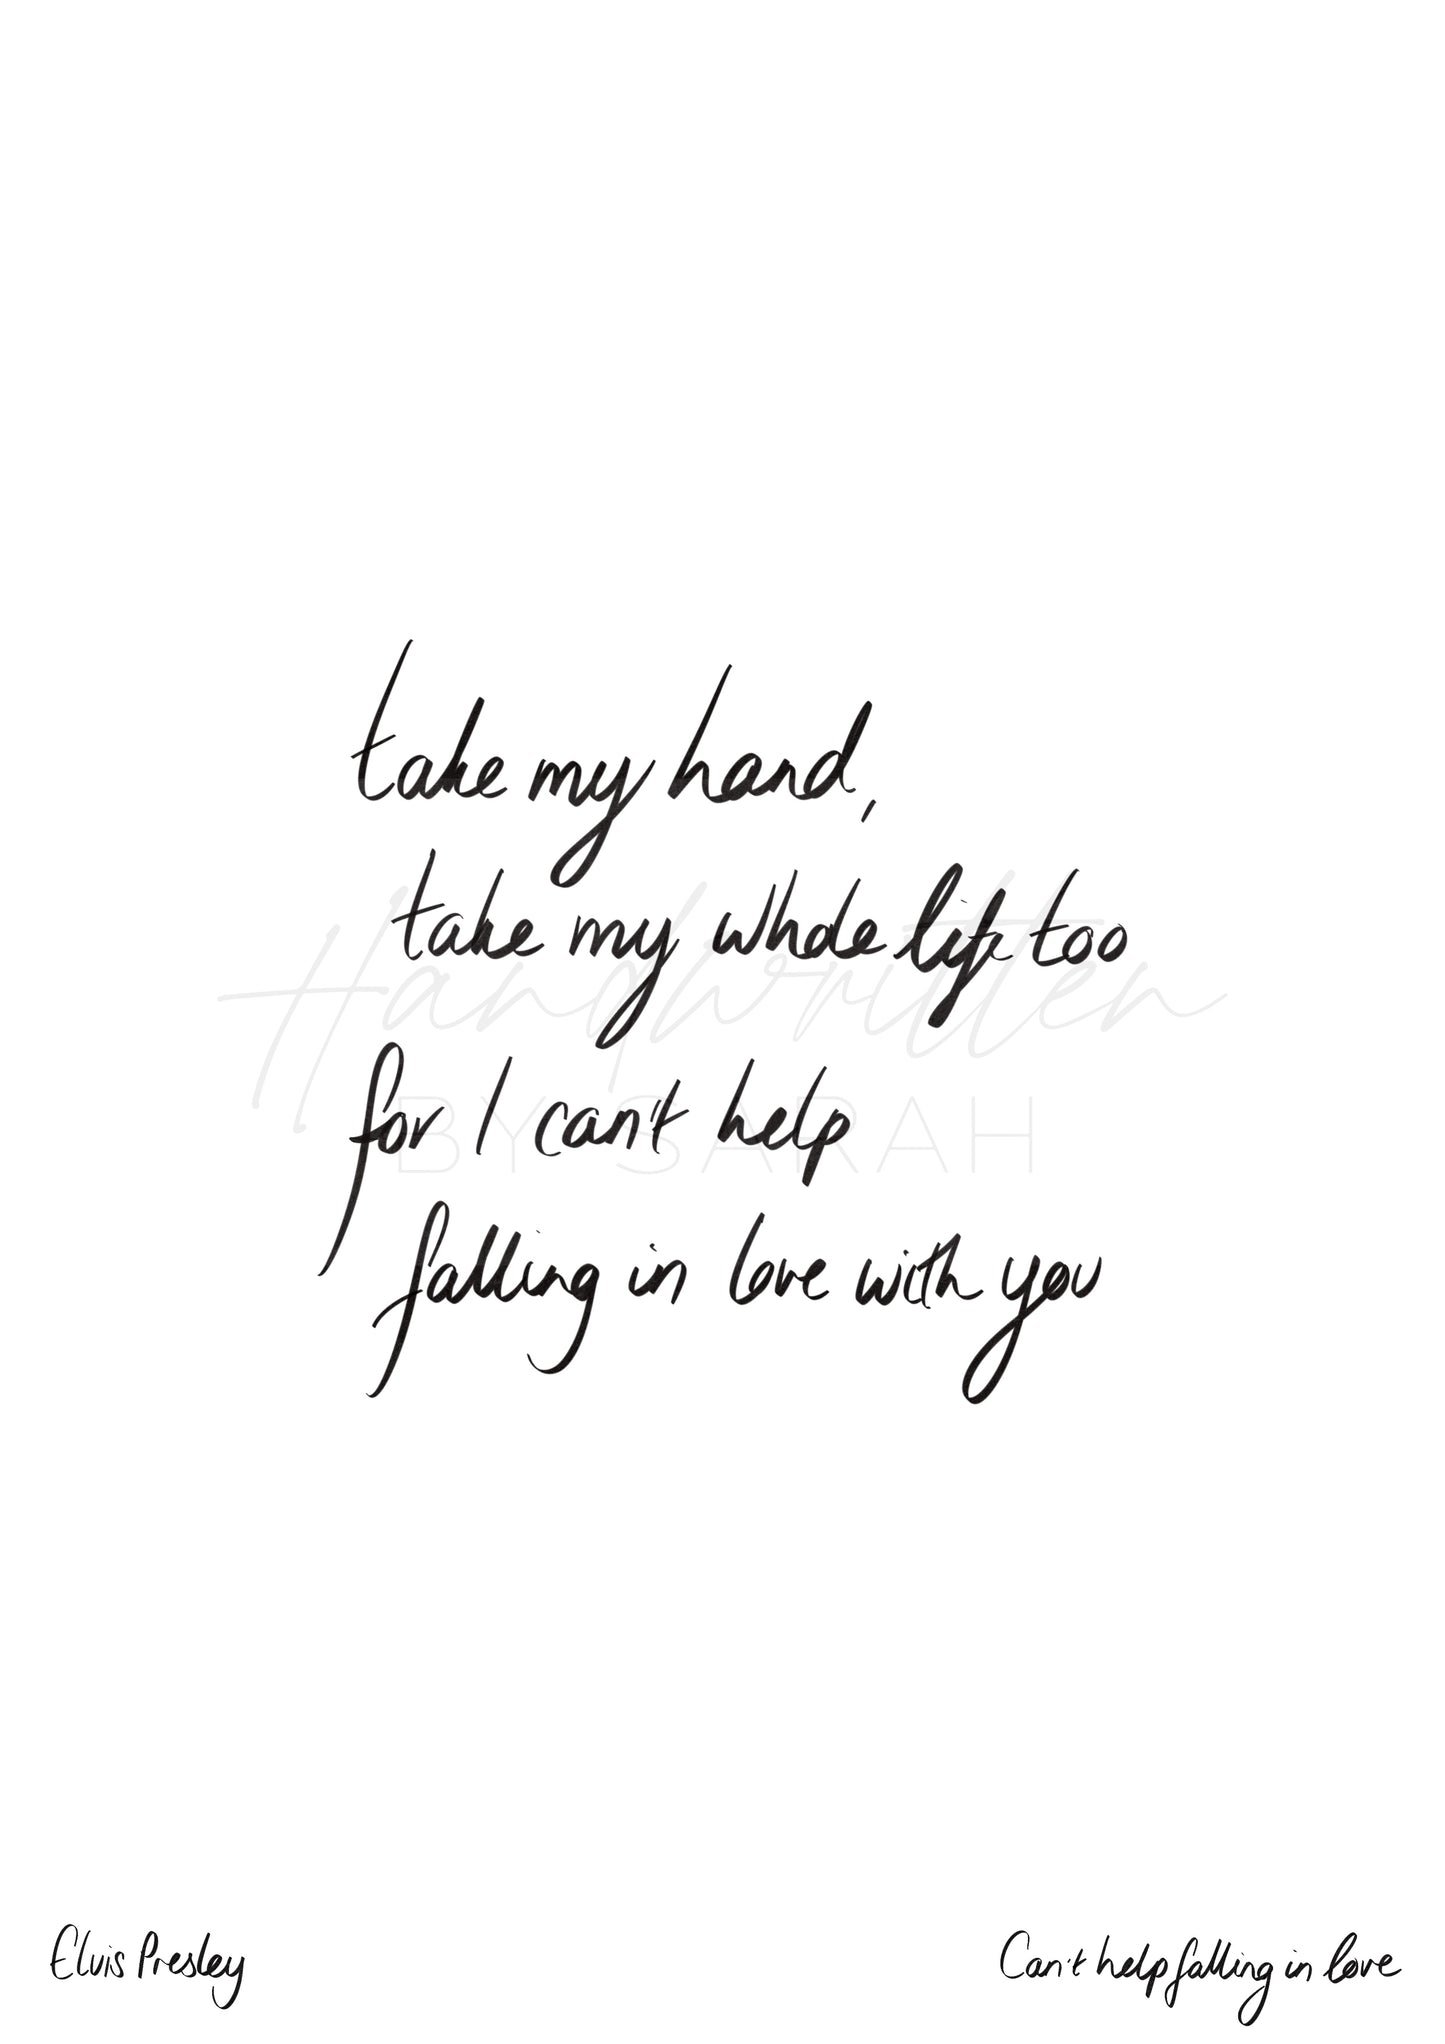 take my hand,
take my whole life too
Handwritten
BY SARAH
for I can't help
falling in love with you
Elvis Presley
Can't help falling in love